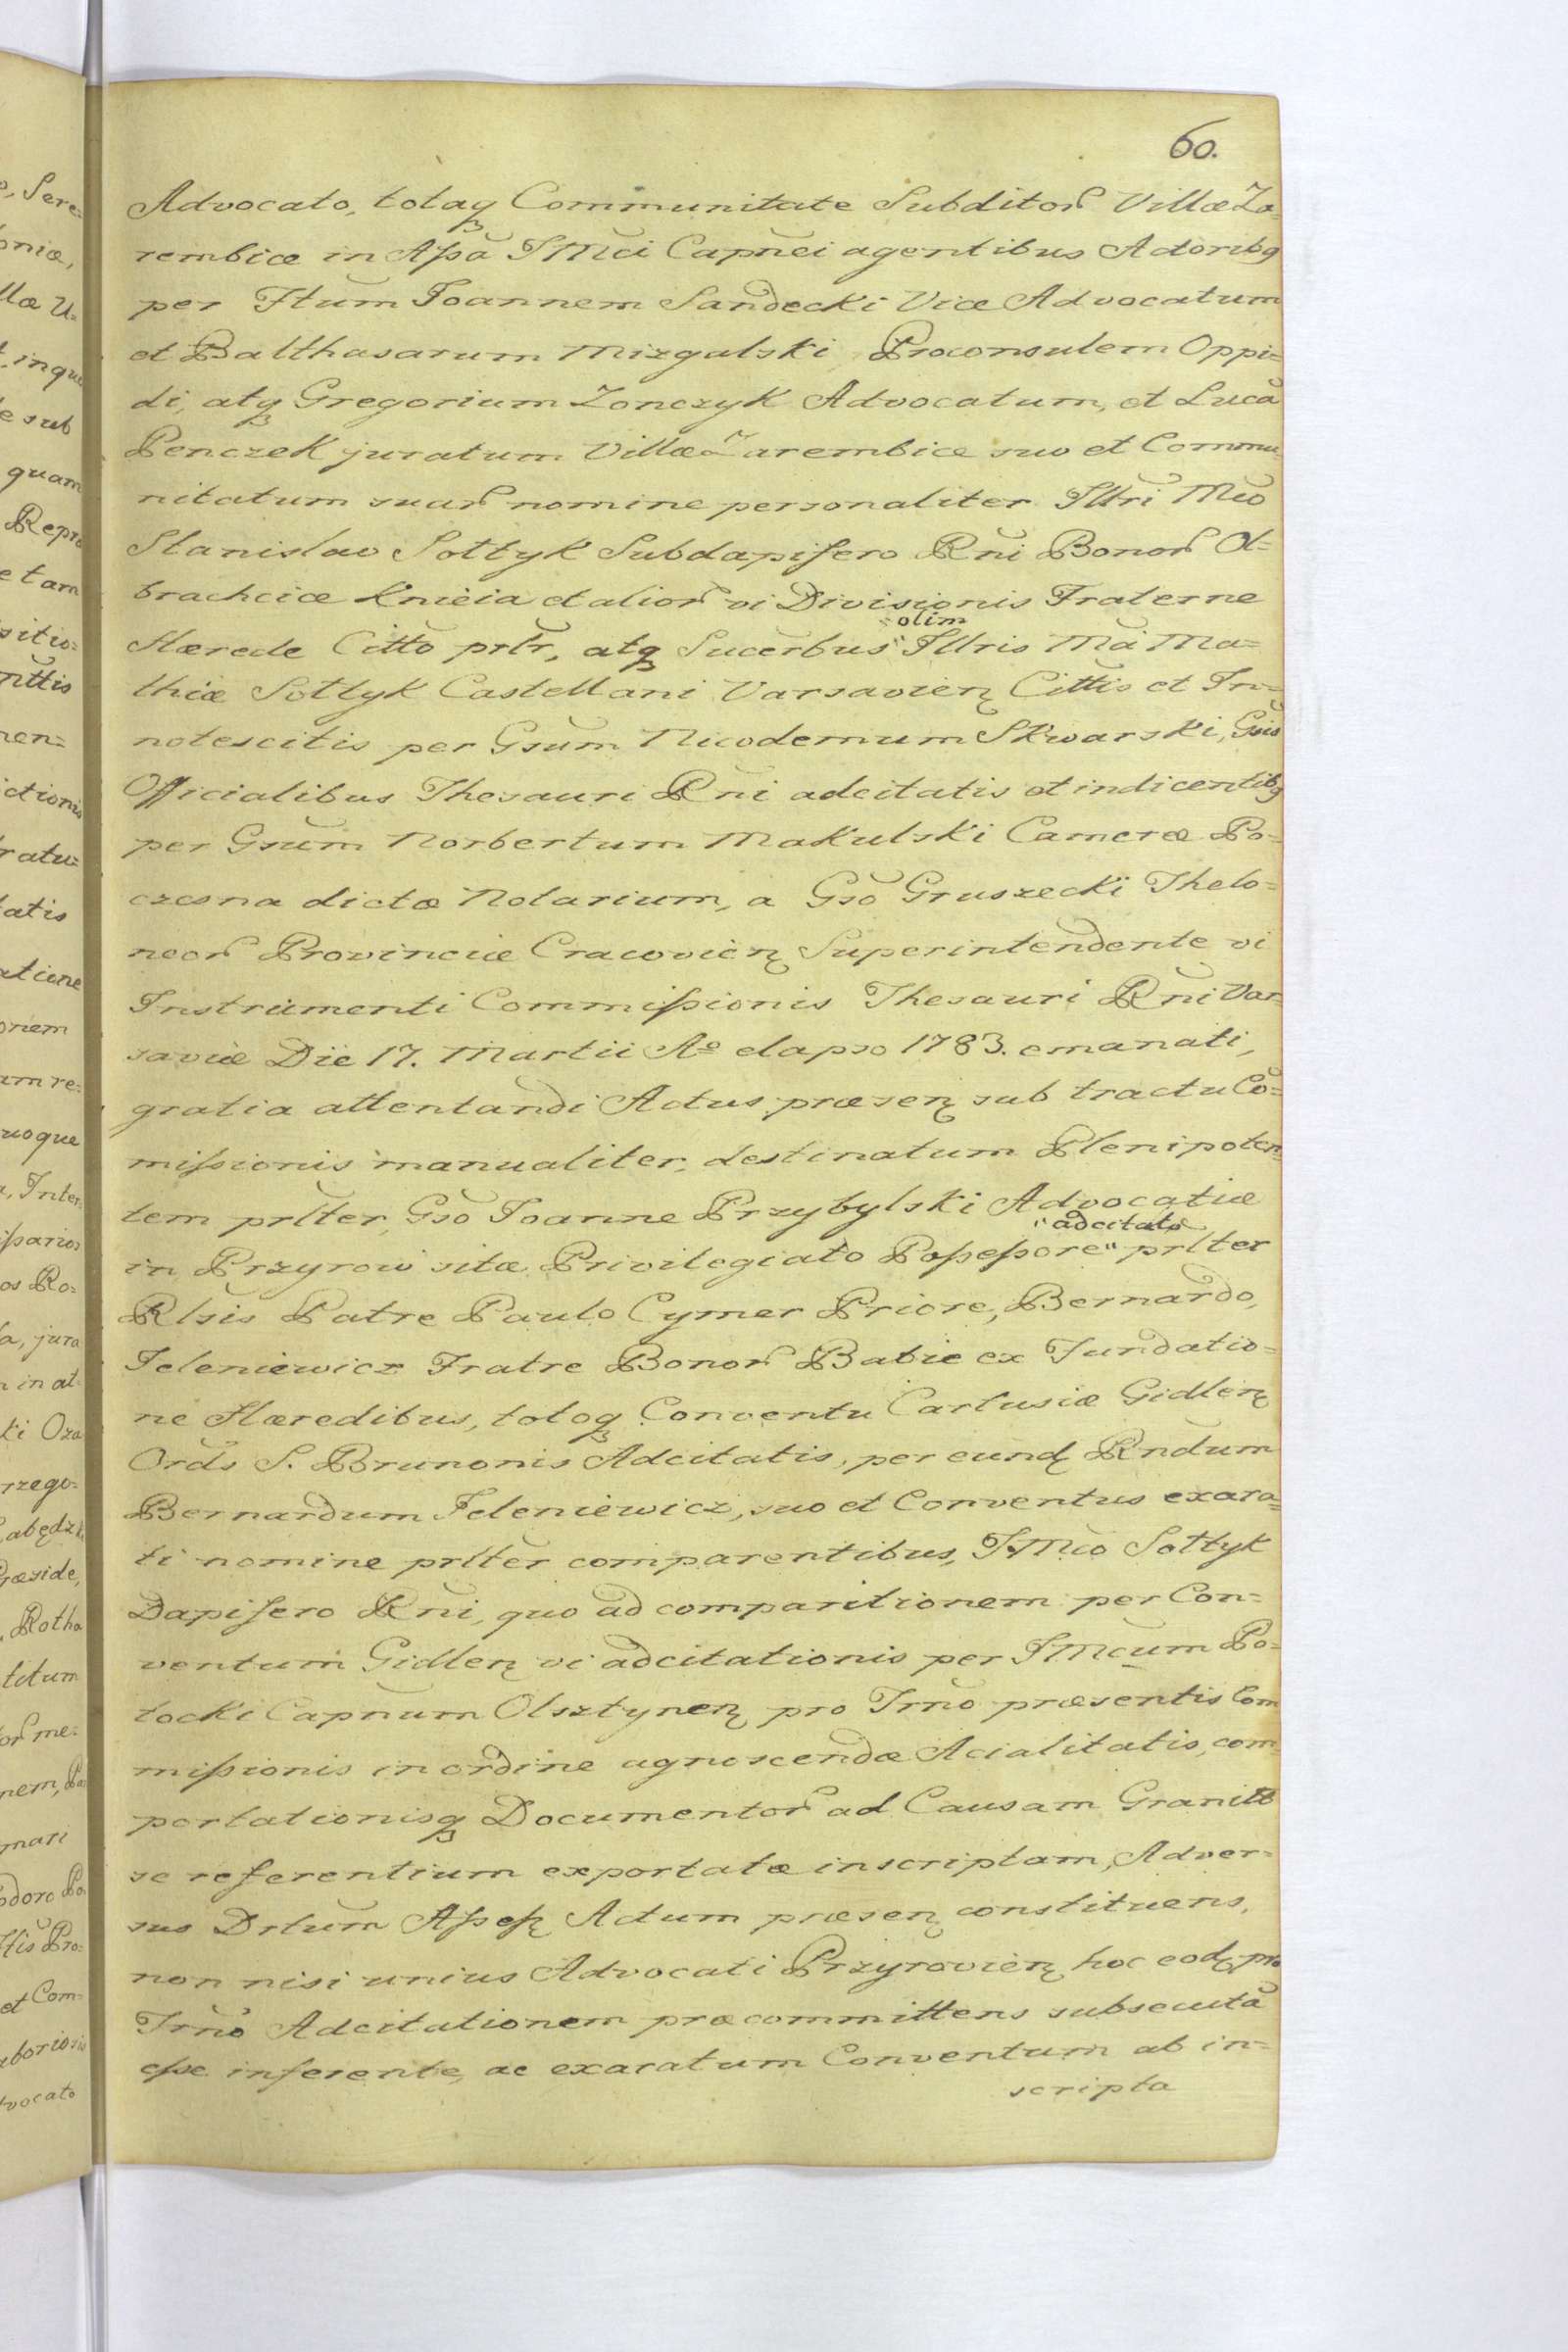 60.
Advocato, totaq Communitate Subditor Villæ Za=
rembice in Assa̅ IMci Capnei agentibus Actoribq
per Ftum Joannem Sandecki Vice Advocatum
et Balthasarum Mizgalski, Proconsulem Oppi=
di, atq Gregorium Zonczyk Advocatum, et Luca̅
Penczek juratum Villæ Zarembice suo et Commu
nitatum suar nomine personaliter Illri Mco
Stanislao Sołtyk Subdapifero Rni Bonor Ol=
brachcice Knieia et alior vi Divisionis Fraterne
Hærede Citto prlr, atq Sucerbus "olim" Illris Ma̅ Ma=
thiæ Sołtyk Castellani Varsavien Cittis et In=
notescitis per Gsum Nicodemum Skwarski, Gsis
Officialibus Thesauri Rni adcitatis et indicentibq
per Gsum Norbertum Makulski Cameræ Po=
czesna dictæ Notarium, a Gso Gruszecki Thelo=
neor Provinciæ Cracovien Superintendente vi
Instrumenti Commissionis Thesauri Rni Var=
saviæ Die 17. Martii Ao elapso 1783. emanati,
gratia attentandi Actus præsen sub tractu Co̅=
missionis manualiter, destinatum Plenipoten=
tem prlter, Gso Joanne Przybylski Advocatiæ
in Przyrow sitæ Privilegiato Possessore "adcitato" prlter
Rlsis Patre Paulo Cymer Priore, Bernardo,
Jeleniewicz Fratre Bonor Babie ex Fundatio=
ne Hæredibus, totoq Conventu Cartusiæ Gidlen
Ords S. Brunonis Adcitatis, per eund Rndum
Bernardum Jeleniewicz, suo et Conventus exara=
ti nomine prlter comparentibus, IMco Sołtyk
Dapifero Rni, quo ad comparitionem per Con=
ventum Gidlen vi adcitationis per IMcum Po=
tocki Capnum Olsztynen pro Trno præsentis Com
missionis in ordine agnoscendæ Acialitatis, com
portationisq Documentor ad Causam Granitt
se referentium exportatæ inscriptam, Adver=
sus Drtum Assess Actum præsen constituens,
non nisi unius Advocati Przyrovien hoc eod pro
Trno Adcitationem præcommittens subsecuta̅
esse inferente, ac exaratum Conventum ab in=
scripta